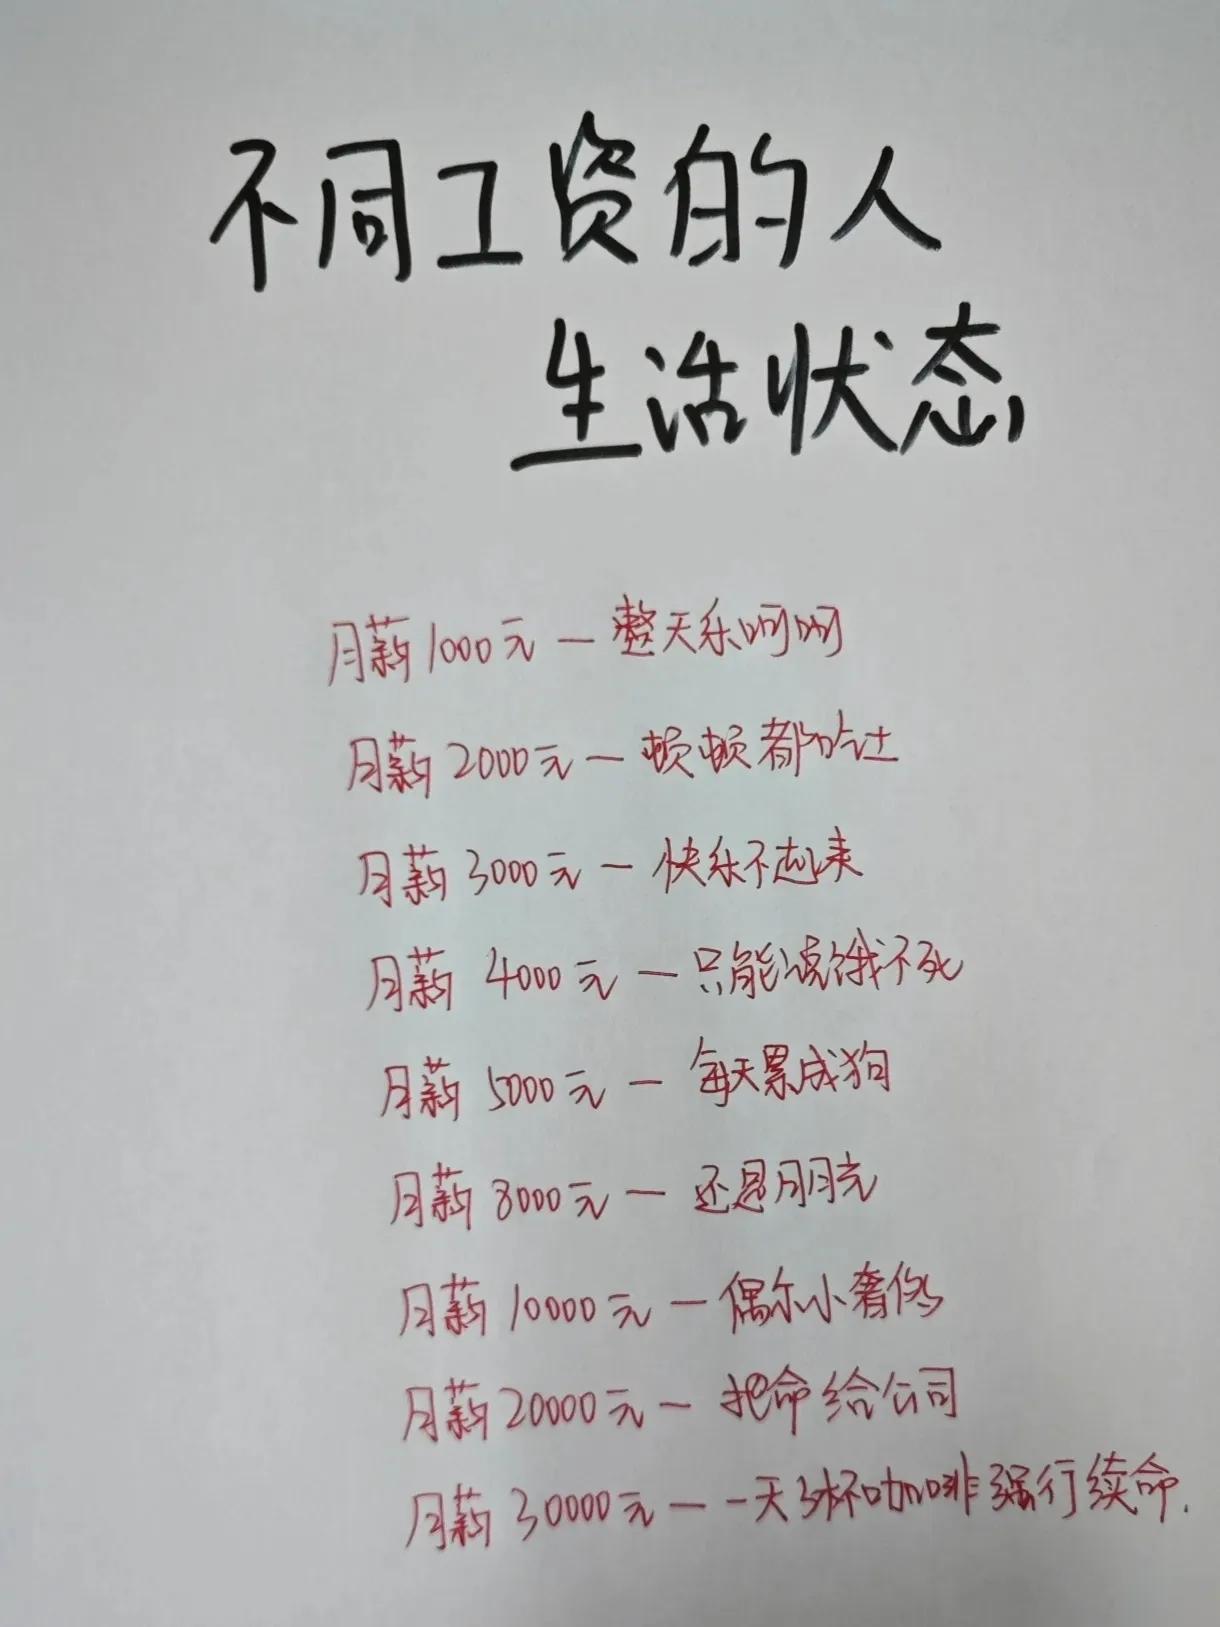 不同工资的人
生活状态
月薪1000元—整天乐呵呵
月薪2000元—顿顿都吃土
月薪3000元—快乐不起来
月薪4000元—只能说饿不死
月薪5000元—每天累成狗
月薪8000元—还是月月光
月薪10000元—偶尔小奢侈
月薪20000元—把命给公司
月薪30000元—一天3杯咖啡强行续命.